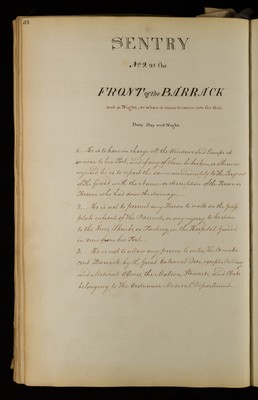 SENTRY
No. 2. at the
FRONT of the BARRACK
Duty Day and Night
1. He is to have in charge all the Windows and Lamps as
so near to his Post, and if any of them be broken, or otherwise
injured he is to report the same immediately to the Sergeant
of the Guard, with the Name or description of the Person or
Persons who had done the damage.
2. He is not to permit any Person to walk on the Grass
plats in front of the Barrack, or any injury to be done
to the Trees, Shrubs, or Planting, in the Hospital Grounds
in view from his Post.
3. He is not to allow any person to enter the
Barrack by the Great Entrance Door, except Military
and Medical Officers, the Matron, Stewards, and Clerks
belonging to the Ordnance Medical Department.